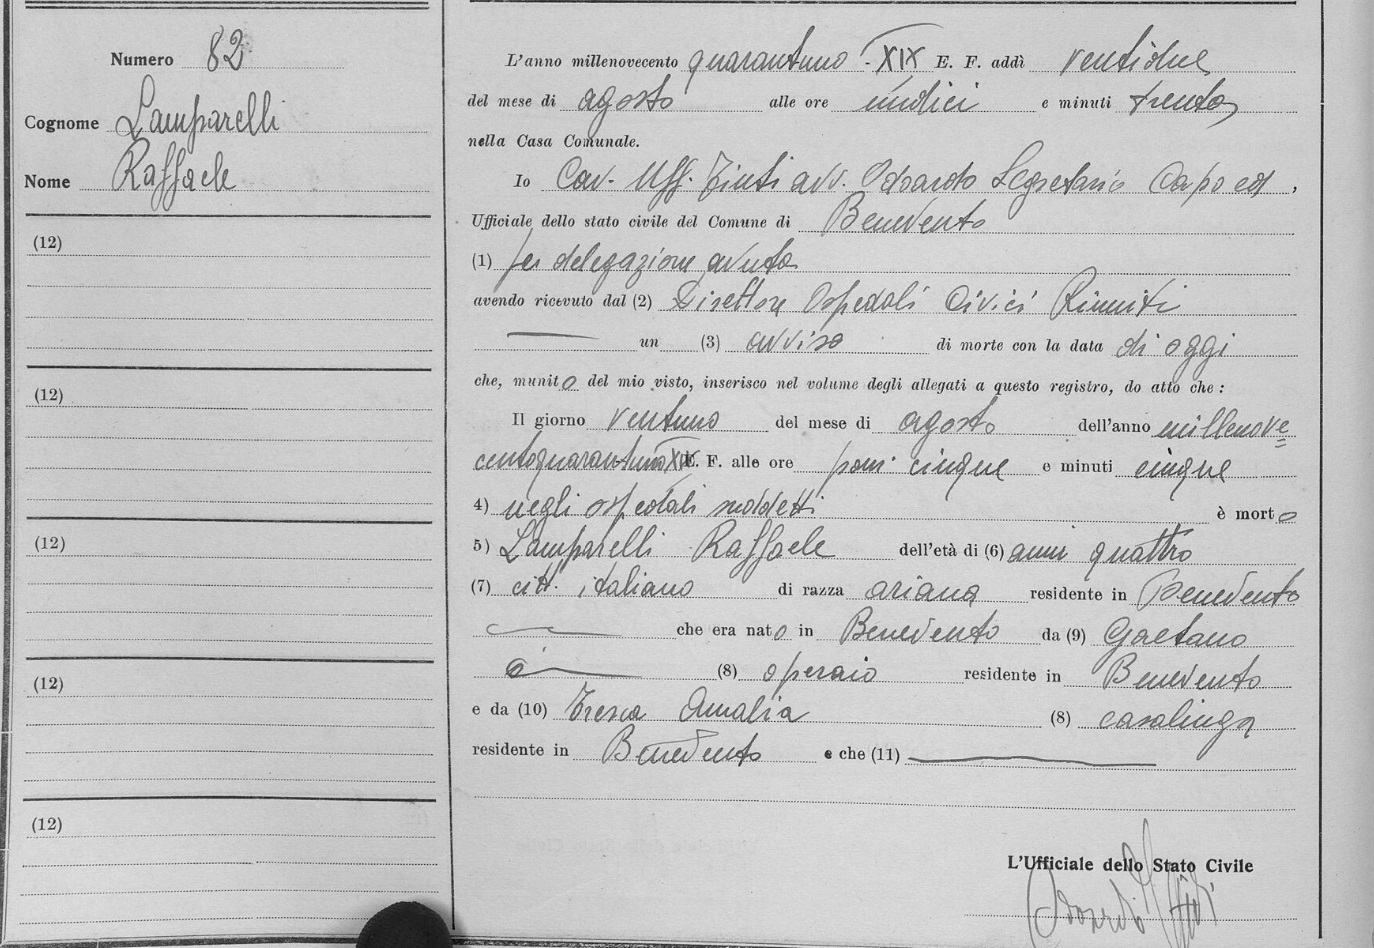 Numero 82
Cognome Lamparelli
Nome Raffaele
(12)
(12)
(12)
(12)
(12)
L'anno millenovecento quarantuno - XIX E. F. addì ventidue
del mese di agosto alle ore undici e minuti trenta
nella Casa Comunale.
Io Cav. Uff. avv. Odoardo Segretario Capo ed
Ufficiale dello stato civile del Comune di Benevento
(1) per delegazione avuta
avendo ricevuto dal (2) Direttore Ospedali Civici Riuniti
un (3) avviso di morte con la data di oggi
che, munito del mio visto, inserisco nel volume degli allegati a questo registro, do atto che :
Il giorno ventuno del mese di agosto dell'anno millenove=
centoquarantuno XIX E. F. alle ore pom. cinque e minuti cinque
4) negli ospedali suddetti è morto
5) Lamparelli Raffaele dell'età di (6) anni quattro
(7) citt. italiano di razza ariana residente in Benevento
che era nato in Benevento da (9) Gaetano
(8) operaio residente in Benevento
e da (10) Amalia (8) casalinga
residente in Benevento e che (11)
L'Ufficiale dello Stato Civile